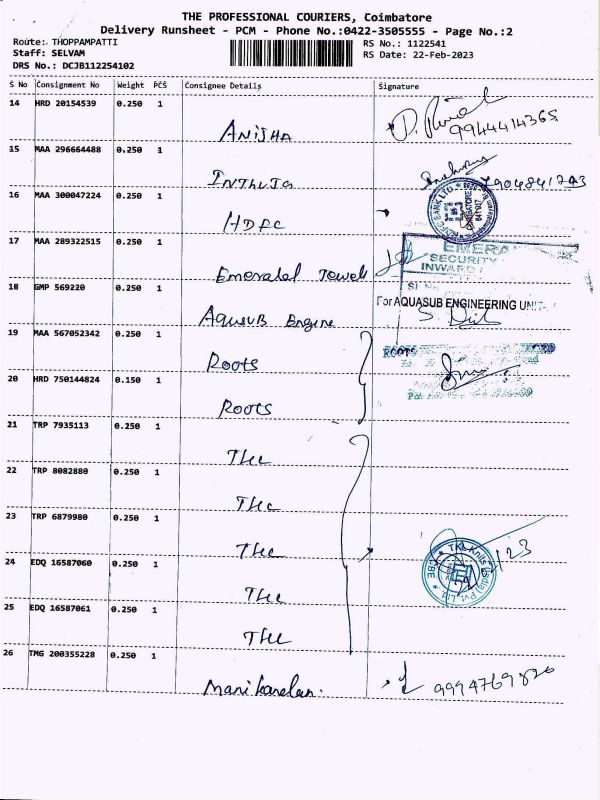 THE PROFESSIONAL COURIERS, Coimbatore
Delivery Runsheet - PCM - Phone No.:0422-3505555 - Page No.:2
Route: THOPPAMPATTI
Staff: SELVAM
DRS No.: DCJB112254102
RS No.: 1122541
RS Date: 22-Feb-2023
S No Consignment No Weight PCS Consignee Details Signature
14 HRD 20154539 0.250 1 ANISHA 9944414365
15 MAA 296664488 0.250 1
16 MAA 300047224 0.250 1 HDFC
17 MAA 289322515 0.250 1 Emerald Jewel
EMERA
SECURITY
INWARD
18 GMP 569220 0.250 1 Aquasub Engine
For AQUASUB ENGINEERING UNIT-
19 MAA 567052342 0.250 1 Roots
ROOTS
20 HRD 750144824 0.150 1 Roots
21 TRP 7935113 0.250 1
22 TRP 8082880 0.250 1
23 TRP 6879980 0.250 1
24 EDQ 16587060 0.250 1
25 EDQ 16587061 0.250 1
26 TMG 200355228 0.250 1 Manikandan.